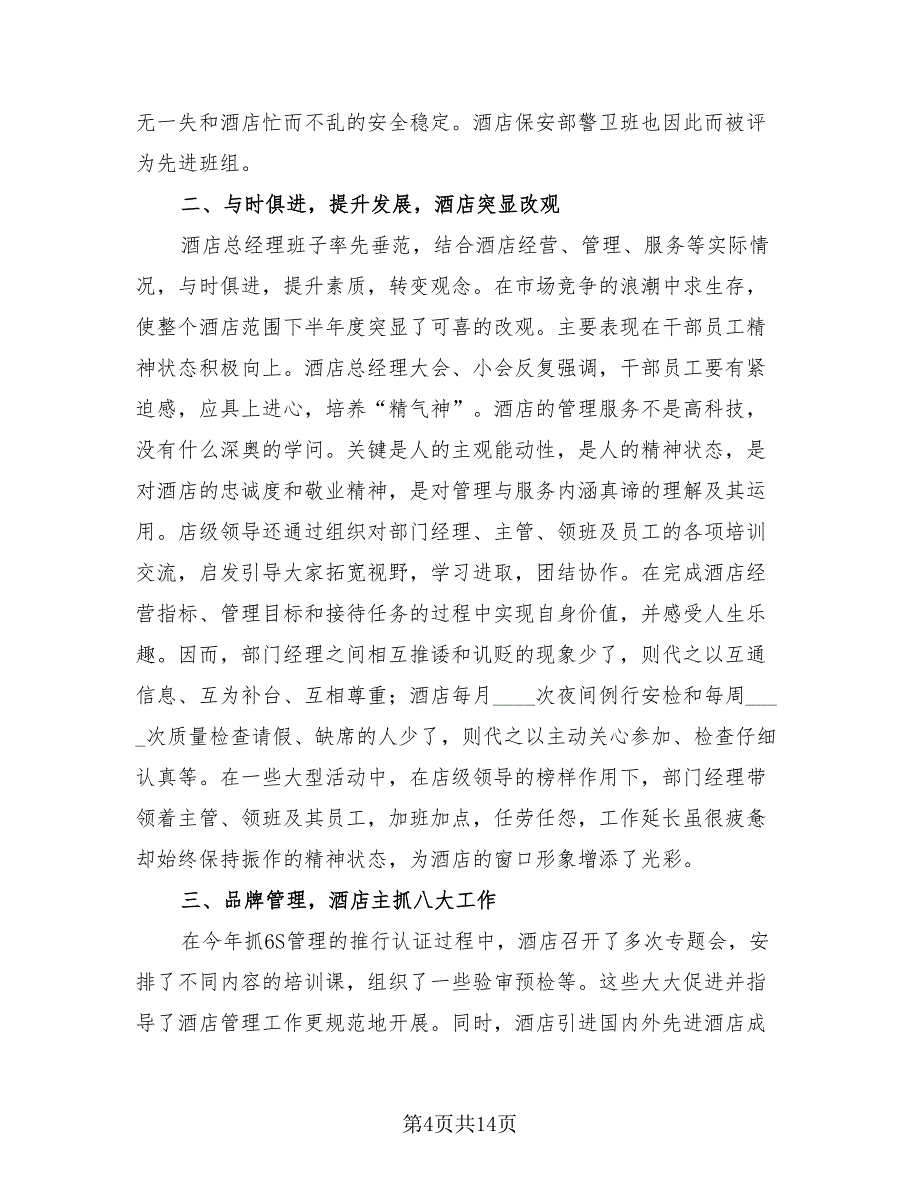 无一失和酒店忙而不乱的安全稳定。酒店保安部警卫班也因此而被评
为先进班组。
二、与时俱进，提升发展，酒店突显改观
酒店总经理班子率先垂范，结合酒店经营、管理、服务等实际情
况，与时俱进，提升素质，转变观念。在市场竞争的浪潮中求生存，
使整个酒店范围下半年度突显了可喜的改观。主要表现在干部员工精
神状态积极向上。酒店总经理大会、小会反复强调，干部员工要有紧
迫感，应具上进心，培养“精气神”。酒店的管理服务不是高科技，
没有什么深奥的学问。关键是人的主观能动性，是人的精神状态，是
对酒店的忠诚度和敬业精神，是对管理与服务内涵真谛的理解及其运
用。店级领导还通过组织对部门经理、主管、领班及员工的各项培训
交流，启发引导大家拓宽视野，学习进取，团结协作。在完成酒店经
营指标、管理目标和接待任务的过程中实现自身价值，并感受人生乐
趣。因而，部门经理之间相互推诿和讥贬的现象少了，则代之以互通
信息、互为补台、互相尊重；酒店每月____次夜间例行安检和每周___
_次质量检查请假、缺席的人少了，则代之以主动关心参加、检查仔细
认真等。在一些大型活动中，在店级领导的榜样作用下，部门经理带
领着主管、领班及其员工，加班加点，任劳任怨，工作延长虽很疲惫
却始终保持振作的精神状态，为酒店的窗口形象增添了光彩。
三、品牌管理，酒店主抓八大工作
在今年抓6S管理的推行认证过程中，酒店召开了多次专题会，安
排了不同内容的培训课，组织了一些验审预检等。这些大大促进并指
导了酒店管理工作更规范地开展。同时，酒店引进国内外先进酒店成
第4页共14页